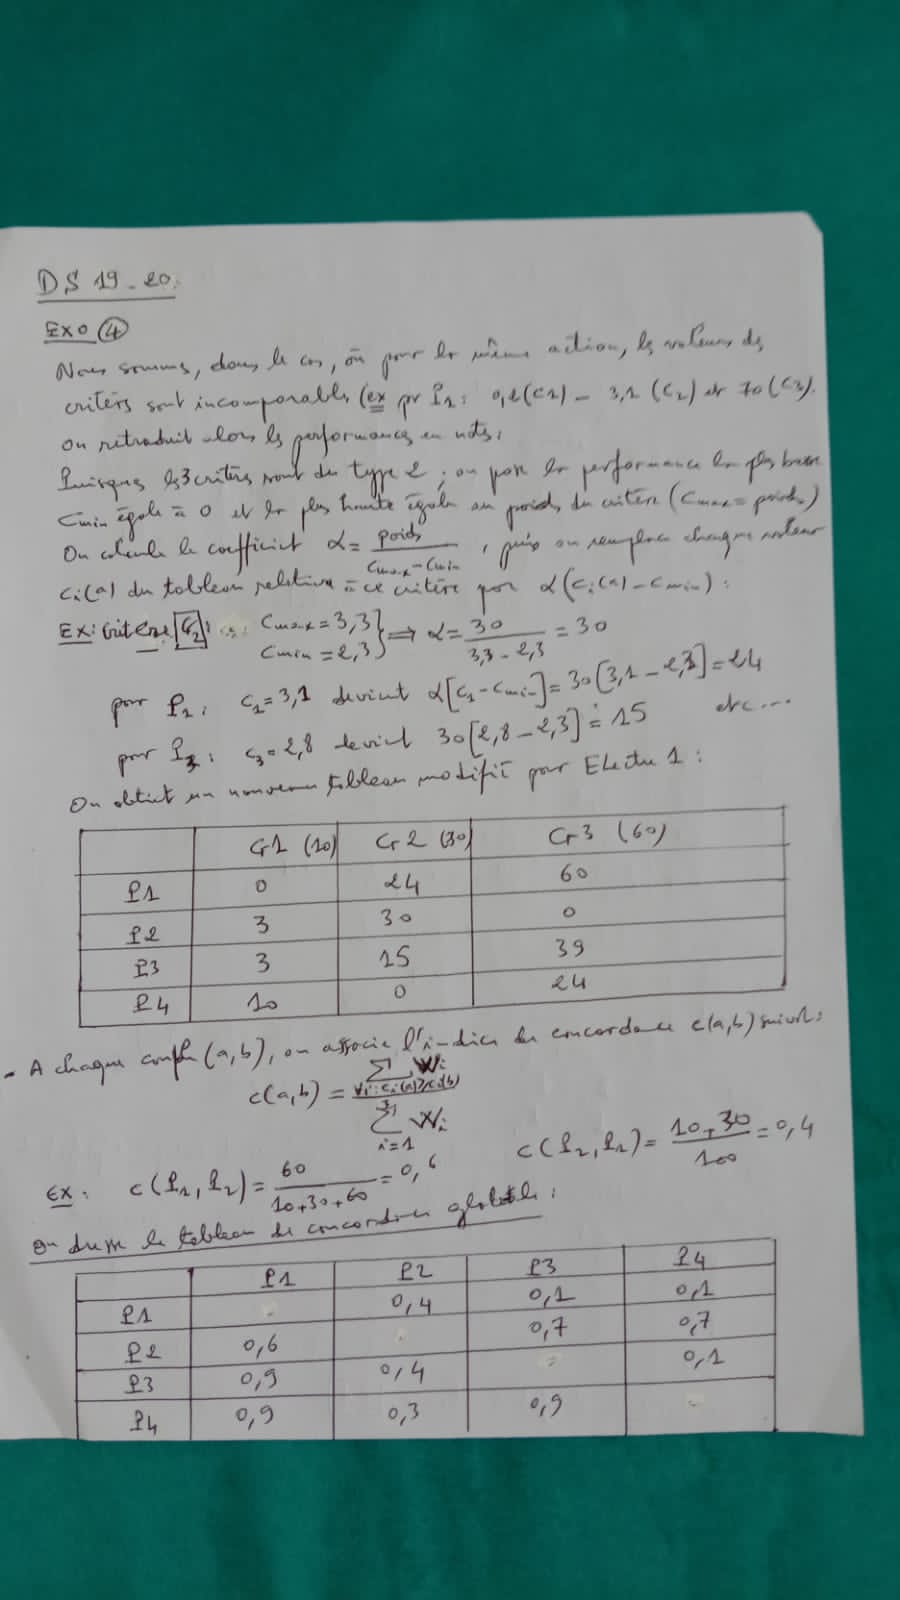 DS 19-20.
Exo ④
Nous sommes, dans le cas, où pour la même action, les valeurs des
critères sont incomparables (ex pr P1: 0,2(C1) - 3,1 (C2) et 70(C3).
on retraduit alors les performances en notes,
Puisque les 3 critères sont du type 2, on pose la performance la plus basse
Cmin égale à 0 et la plus haute égale au poids du critère (Cmax = poids)
On calcule le coefficient α = poids / (Cmax - Cmin), puis on remplace chaque valeur
Ci(a) du tableau relative à ce critère par α(Ci(a) - Cmin):
Ex: critère C2: Cmax = 3,3 } ⇒ α = 30 / (3,3 - 2,3) = 30
Cmin = 2,3 }
pour P1, C1 = 3,1 devient α[C1 - Cmin] = 30[3,1 - 2,3] = 24
pour P3: C3 = 2,8 devient 30[2,8 - 2,3] = 15 etc...
On obtient un nouveau tableau modifié pour Electre 1:
Cr1 (10) Cr2 (30) Cr3 (60)
P1 0 24 60
P2 3 30 0
P3 3 15 39
P4 10 0 24
- A chaque couple (a,b), on associe l'indice de concordance c(a,b) suivt:
c(a,b) = Σ Wi / Σ Wi
∀i: Ci(a) ≥ Ci(b)
3
i=1
Ex: C(P1, P2) = 60 / (10+30+60) = 0,6 C(P2, P1) = (10+30) / 100 = 0,4
On dresse le tableau de concordance globale:
P1 P2 P3 P4
P1 - 0,4 0,1 0,1
P2 0,6 - 0,7 0,7
P3 0,9 0,4 - 0,1
P4 0,9 0,3 0,9 -